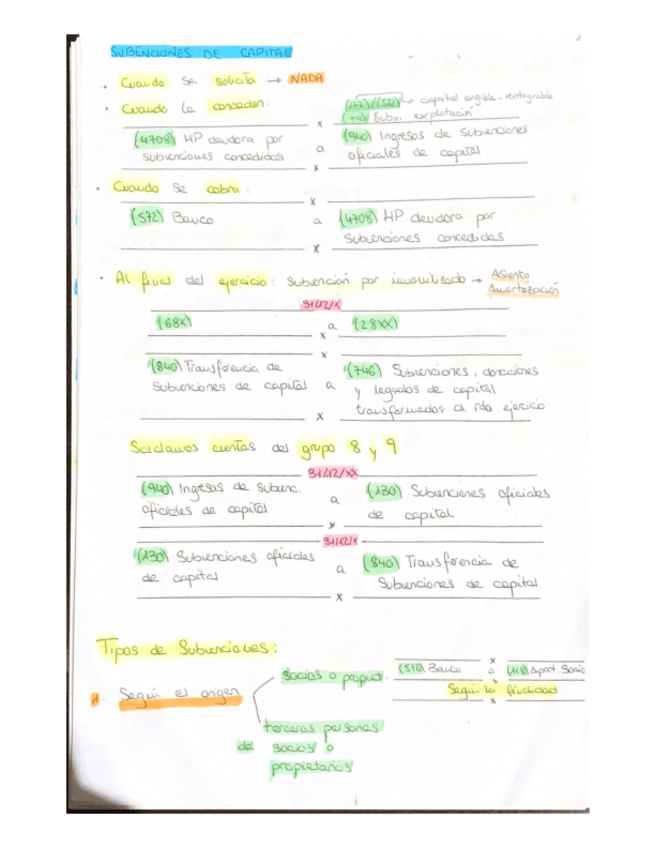 SUBENCIONES DE CAPITAL
· Cuando se solicita → NADA
· Cuando la conceden:
(172)/(522) → capital exigible - reintegrable
(740) Subv. explotación
x
(4708) HP deudora por subvenciones concedidas a (940) Ingresos de subvenciones oficiales de capital
x
· Cuando se cobra:
x
(572) Banco a (4708) HP deudora por subvenciones concedidas
x
· Al final del ejercicio: subvención por inmovilizado → Asiento Amortización
31/12/X
(68X) a (28XX)
x
x
(840) Transferencia de subvenciones de capital a (746) Subvenciones, donaciones y legados de capital transformados al rdo ejercicio
x
Saldamos cuentas del grupo 8 y 9
31/12/XX
(940) Ingresos de subvenc. oficiales de capital a (130) Subvenciones oficiales de capital
x
31/12/X
(130) Subvenciones oficiales de capital a (840) Transferencia de subvenciones de capital
x
Tipos de Subvenciones:
1. Según el origen
socios o propiet.
x
(572) Banco a (118) Aport. Socio
Según la finalidad
x
terceras personas
de socios o
propietarios